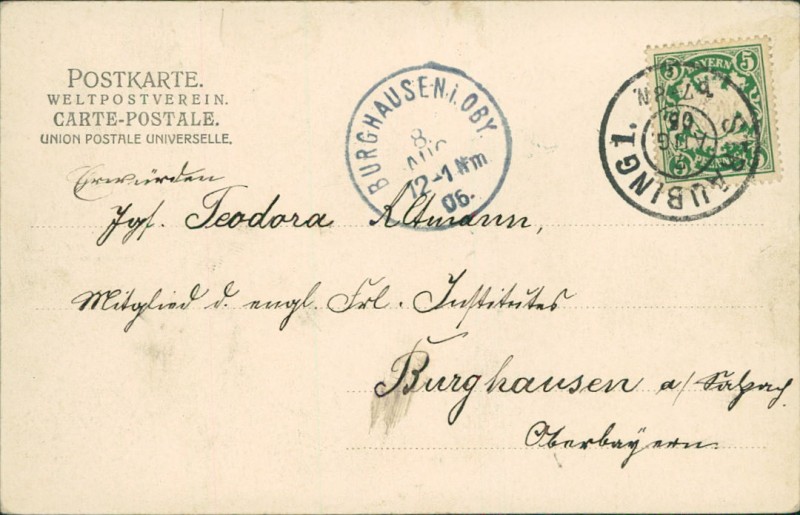 POSTKARTE.
WELTPOSTVEREIN.
CARTE-POSTALE.
UNION POSTALE UNIVERSELLE.
BURGHAUSEN i. OBY.
8
AUG
12-1 Nm
06.
BAYERN
5 5
5 5
STRAUBING 1.
7 AUG
06
Erwürden
Jgf. Teodora Altmann,
Mitglied d. engl. Frl. Institutes
Burghausen a/ Salzach.
Oberbayern.